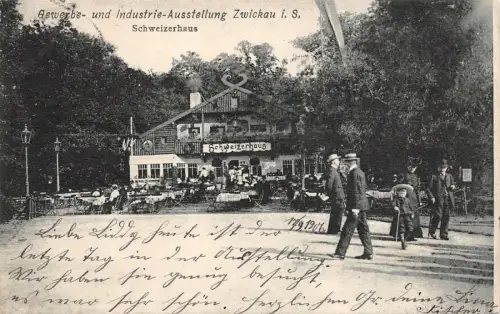 Gewerbe- und Industrie-Ausstellung Zwickau i. S.
Schweizerhaus
Schweizerhaus
17/9 1906
Liebe Liddy, heute ist der
letzte Tag in der Austellung
Wir haben sie genug besucht,
es war sehr sehr schön. Herzlichen Gr. deine Lina
Fischer